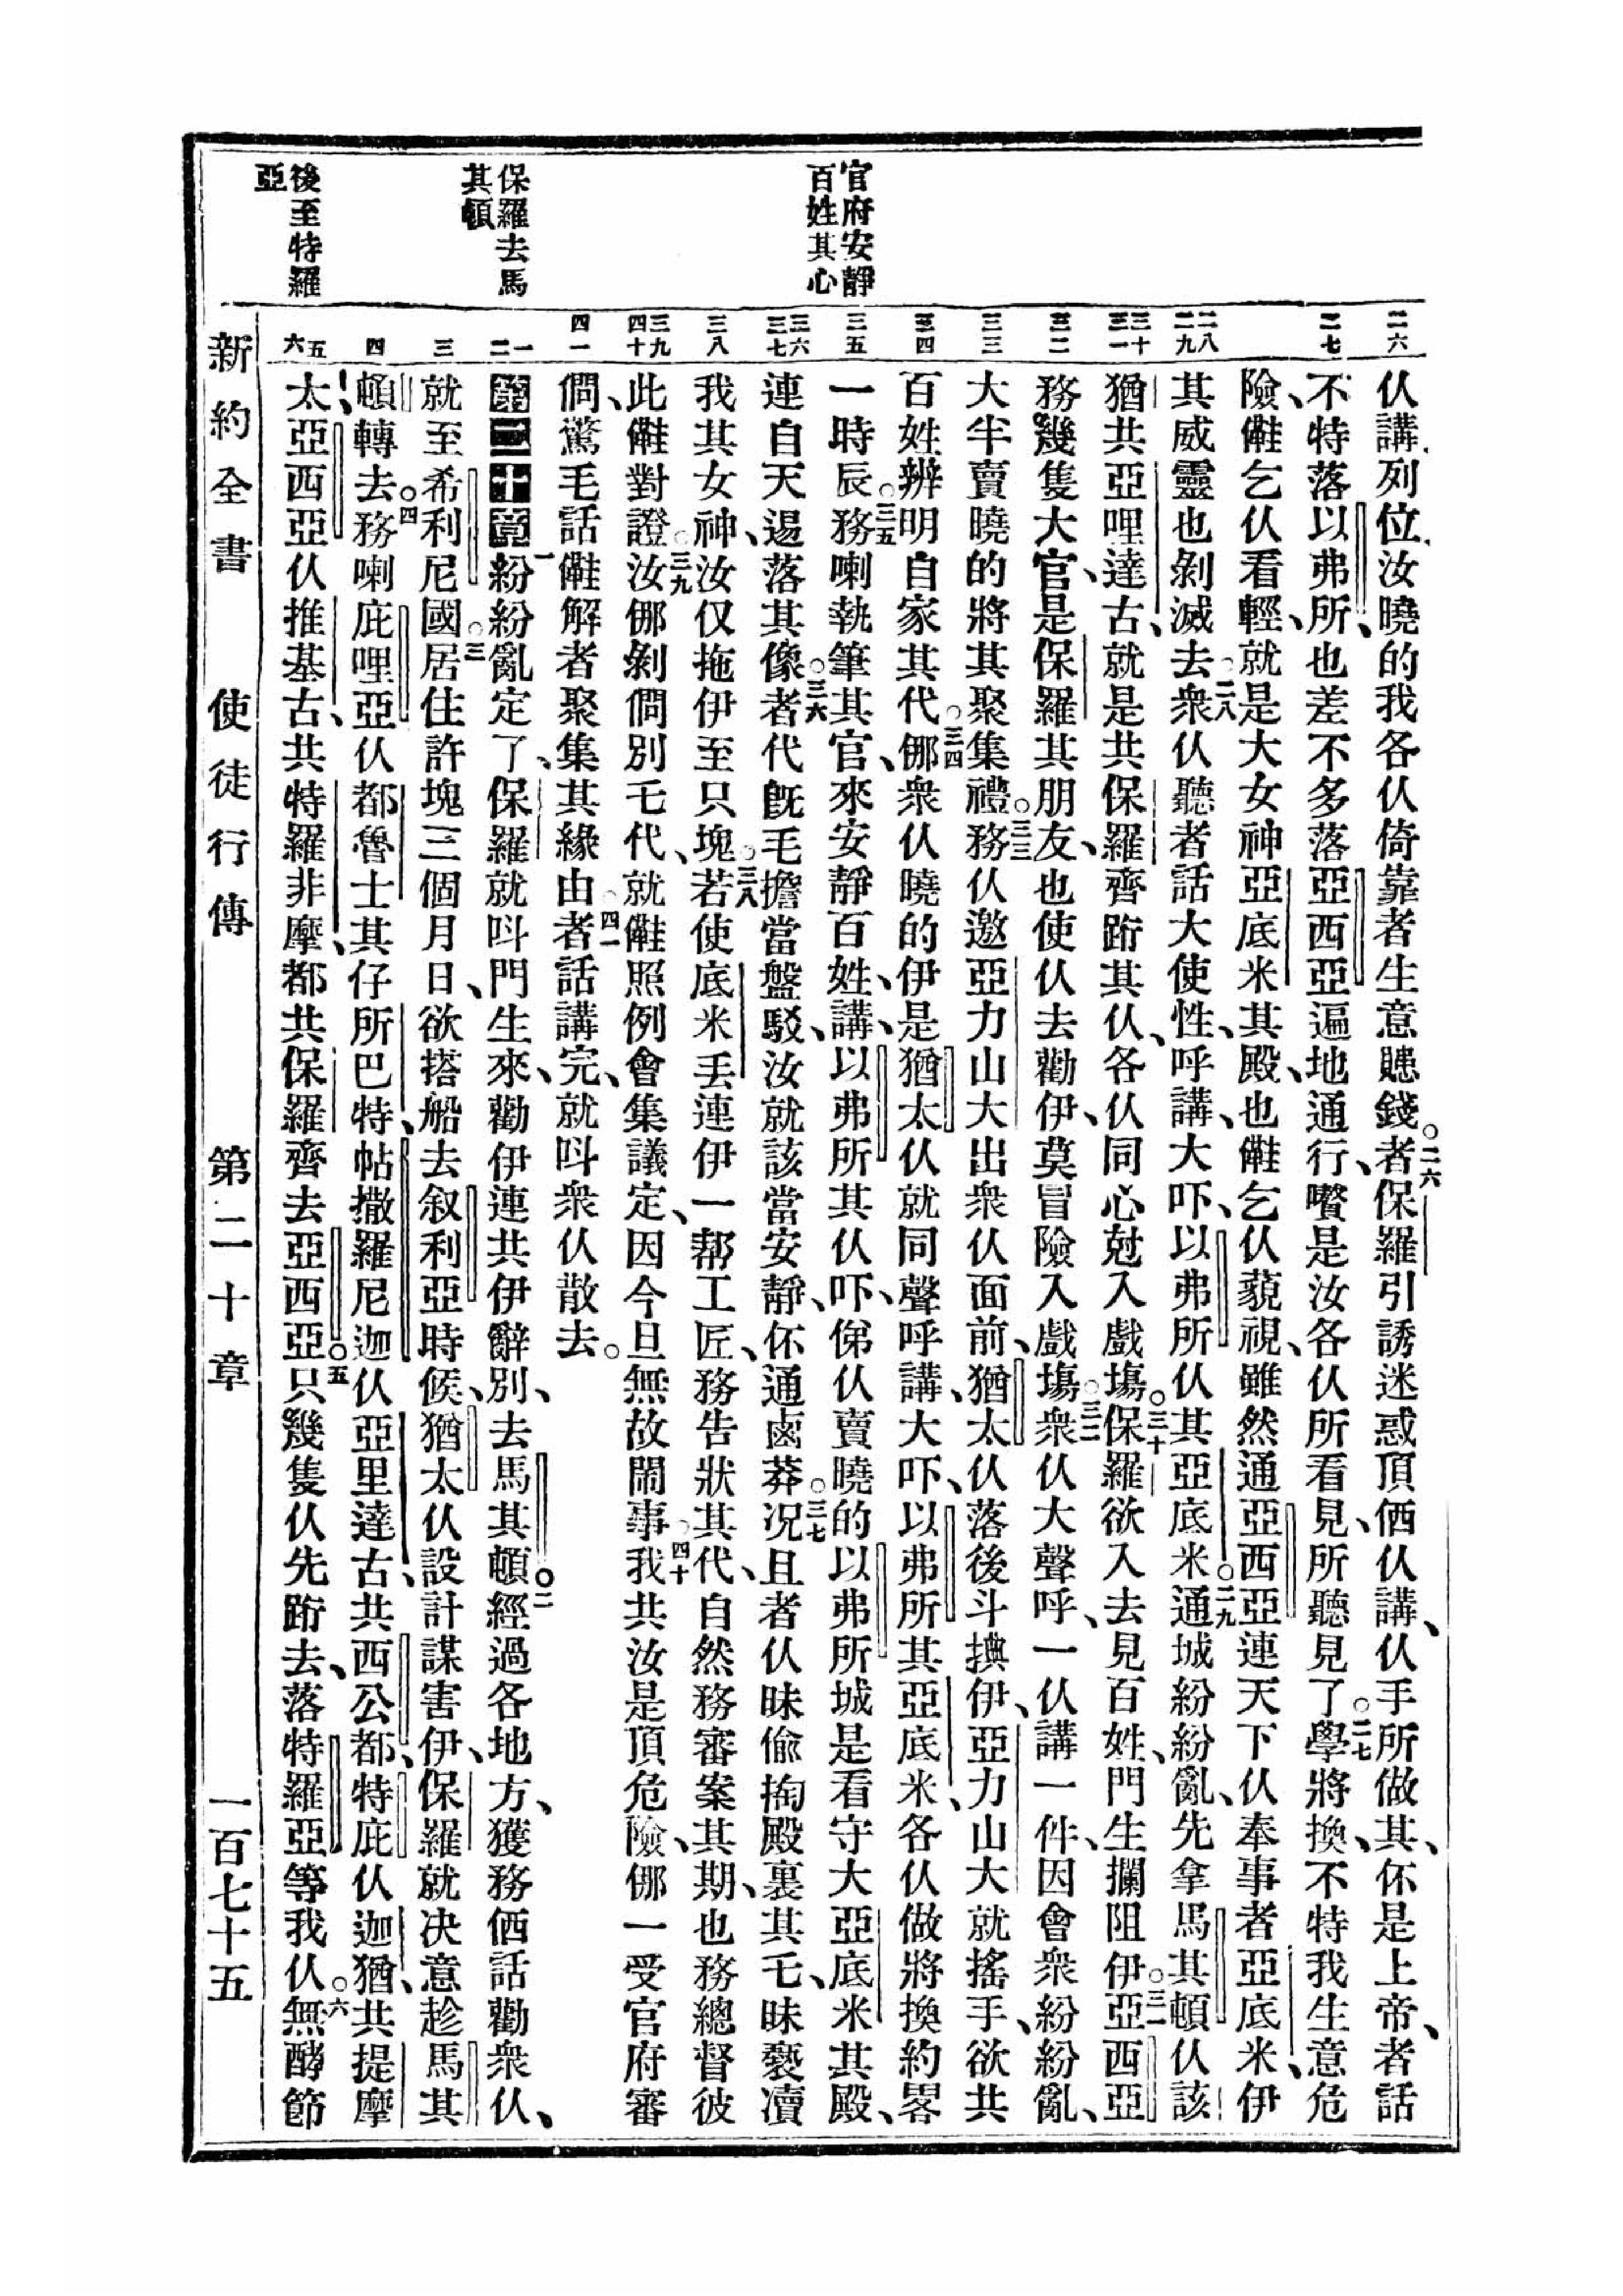 官府安靜
百姓其心
保羅去馬
其頓
後至特羅
亞
二六
二七
二八
二九
三十
三一
三二
三三
三四
三五
三六
三七
三八
三九
四十
四一
一
二
三
四
五
六
仈講列位、汝曉的我各仈倚靠者生意賺錢○二六者保羅引誘迷惑頂㑚仈講、仈手所做其、伓是上帝、者話
不特落以弗所、也差不多落亞西亞遍地通行、嚽是汝各仈所看見、所聽見了○二七學將換、不特我生意危
險、㒁乞仈看輕、就是大女神亞底米其殿、也㒁乞仈藐視、雖然通亞西亞連天下仈奉事者亞底米、伊
其威靈也剝滅去○二八衆仈聽者話大使性、呼講、大吓、以弗所仈其亞底米○二九通城紛紛亂、先拿馬其頓仈該
猶共亞哩達古、就是共保羅齊跡其仈、各仈同心尅入戲塲○三十保羅欲入去見百姓、門生攔阻伊○三一亞西亞
務幾隻大官、是保羅其朋友、也使仈去勸伊、莫冒險入戲塲○三二衆仈大聲呼、一仈講一件、因會衆紛紛亂、
大半賣曉的將其聚集禮務○三三仈邀亞力山大出衆仈面前、猶太仈落後斗㨂伊、亞力山大就搖手、欲共
百姓辨明自家其代○三四㑚衆仈曉的伊是猶太仈就同聲呼講、大吓、以弗所其亞底米、各仈做將換約畧
一時辰○三五務喇執筆其官、來安靜百姓、講、以弗所其仈吓、俤仈賣曉的以弗所城是看守大亞底米其殿、
連自天逷落其像者○三六者代旣毛擔當盤駁、汝就該當安靜、伓通鹵莽○三七况且者仈昧偷掏殿裏其乇、昧褻瀆
我其女神、汝仅拖伊至只塊○三八若使底米丟連伊一幫工匠、務告狀其代、自然務審案其期、也務總督彼
此㒁對證○三九汝㑚剝僩別乇代、就㒁照例會集議定○四十因今旦無故鬧事、我共汝是頂危險、㑚一受官府審
僩、驚毛話㒁解者聚集其緣由○四一者話講完、就呌衆仈散去。
第二十章一紛紛亂定了、保羅就呌門生來、勸伊連共伊辭別、去馬其頓○二經過各地方、獲務㑚話勸衆仈、
就至希利尼國○三居住許塊三個月日、欲搭船去叙利亞時候、猶太仈設計謀害伊、保羅就决意趁馬其
頓轉去○四務喇庇哩亞仈都魯士其仔所巴特、帖撒羅尼迦仈亞里達古、共西公都、特庇仈迦猶、共提摩
太、亞西亞仈推基古、共特羅非摩、都共保羅齊去亞西亞○五只幾隻仈先跡去、落特羅亞等我仈○六無酵節
新約全書 使徒行傳 第二十章 一百七十五